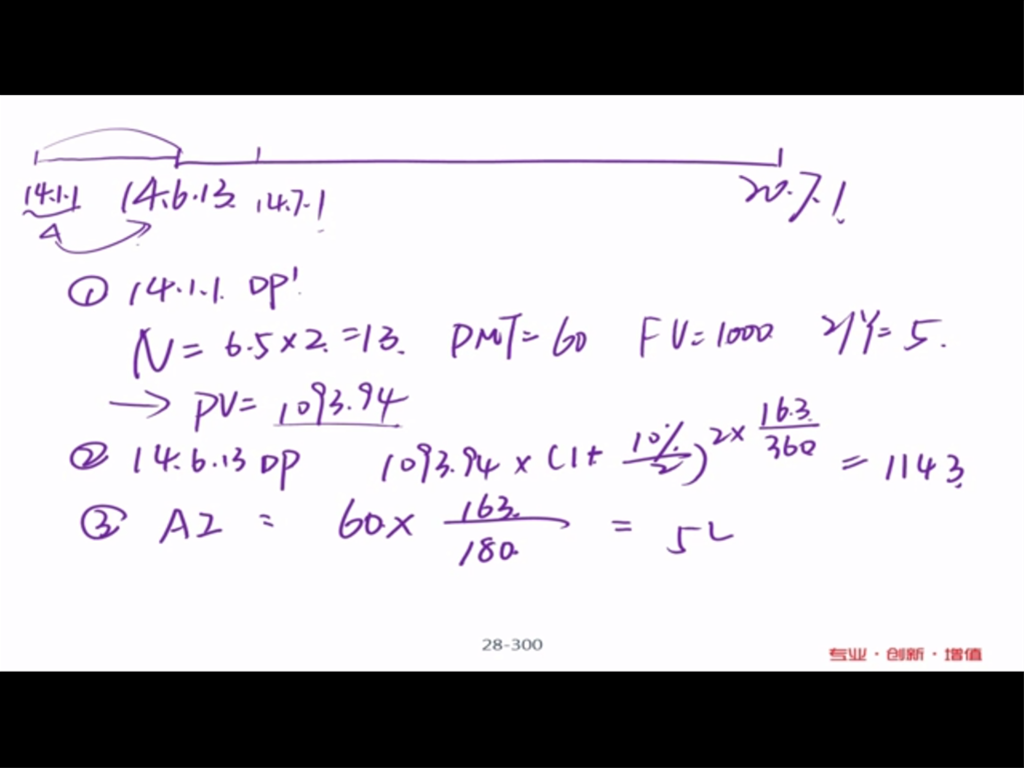 14.1.1 14.6.13 14.7.1 20.7.1
① 14.1.1 DP'
N = 6.5×2 =13. PMT= 60 FV=1000 I/Y= 5.
→ PV= 1093.94
② 14.6.13 DP 1093.94 × (1+ 10%/2)^2× 163/360 = 1143.
③ AI = 60× 163/180 = 54
28-300
专业·创新·增值